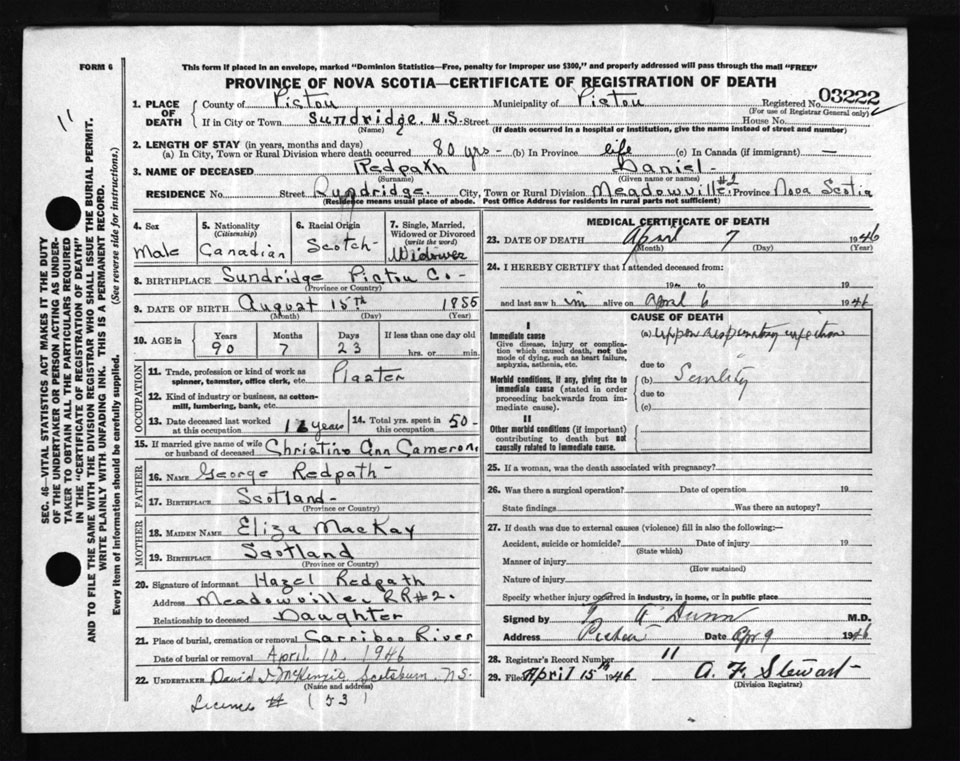 FORM 6
This form if placed in an envelope, marked "Dominion Statistics—Free, penalty for improper use $300," and properly addressed will pass through the mail "FREE"
PROVINCE OF NOVA SCOTIA—CERTIFICATE OF REGISTRATION OF DEATH
11
1. PLACE OF DEATH County of Pictou Municipality of Pictou Registered No. 03222
(For use of Registrar General only)
If in City or Town Sundridge, N.S. Street House No.
(Name) (If death occurred in a hospital or institution, give the name instead of street and number)
2. LENGTH OF STAY (in years, months and days)
(a) In City, Town or Rural Division where death occurred 80 yrs - (b) In Province life (c) In Canada (if immigrant) —
3. NAME OF DECEASED Redpath Daniel
(Surname) (Given name or names)
RESIDENCE No. Street Sundridge. City, Town or Rural Division Meadowville #2 Province Nova Scotia
(Residence means usual place of abode. Post Office Address for residents in rural parts not sufficient)
4. Sex Male
5. Nationality (Citizenship) Canadian
6. Racial Origin Scotch
7. Single, Married, Widowed or Divorced (write the word) Widower
8. BIRTHPLACE Sundridge Pictou Co. -
(Province or Country)
9. DATE OF BIRTH August 15th 1855
(Month) (Day) (Year)
10. AGE in Years 90 Months 7 Days 23 If less than one day old hrs. or min.
OCCUPATION
11. Trade, profession or kind of work as spinner, teamster, office clerk, etc.
12. Kind of industry or business, as cotton-mill, lumbering, bank, etc.
13. Date deceased last worked at this occupation years
14. Total yrs. spent in this occupation 50 -
15. If married give name of wife or husband of deceased Christina Ann Cameron.
FATHER
16. NAME George Redpath -
17. BIRTHPLACE Scotland -
(Province or Country)
MOTHER
18. MAIDEN NAME Eliza MacKay
19. BIRTHPLACE Scotland
(Province or Country)
20. Signature of informant Hazel Redpath
Address Meadowville RR#2.
Relationship to deceased Daughter
21. Place of burial, cremation or removal Carriboo River
Date of burial or removal April 10, 1946
22. UNDERTAKER David McKenzie Scotsburn N.S.
(Name and address)
License # (53)
MEDICAL CERTIFICATE OF DEATH
23. DATE OF DEATH April 7 1946
(Month) (Day) (Year)
24. I HEREBY CERTIFY that I attended deceased from:
19 to 19
and last saw h im alive on April 6 1946
CAUSE OF DEATH
I
Immediate cause (a) Upper respiratory infection
Give disease, injury or complication which caused death, not the mode of dying, such as heart failure, asphyxia, asthenia, etc.
due to
Morbid conditions, if any, giving rise to immediate cause (stated in order proceeding backwards from immediate cause).
(b) Senility
due to
(c)
II
Other morbid conditions (if important) contributing to death but not causally related to immediate cause.
25. If a woman, was the death associated with pregnancy?
26. Was there a surgical operation? Date of operation 19
State findings Was there an autopsy?
27. If death was due to external causes (violence) fill in also the following:—
Accident, suicide or homicide? Date of injury 19
(State which)
Manner of injury
(How sustained)
Nature of injury
Specify whether injury occurred in industry, in home, or in public place
Signed by Dunn M.D.
Address Pictou Date Apr 9 1946
28. Registrar's Record Number 11
29. Filed April 15th 1946 A. F. Stewart
(Division Registrar)
SEC. 46—VITAL STATISTICS ACT MAKES IT THE DUTY
OF THE UNDERTAKER OR PERSON ACTING AS UNDER-
TAKER TO OBTAIN ALL THE PARTICULARS REQUIRED
IN THE "CERTIFICATE OF REGISTRATION OF DEATH"
AND TO FILE THE SAME WITH THE DIVISION REGISTRAR WHO SHALL ISSUE THE BURIAL PERMIT.
WRITE PLAINLY WITH UNFADING INK. THIS IS A PERMANENT RECORD.
Every item of information should be carefully supplied. (See reverse side for instructions.)